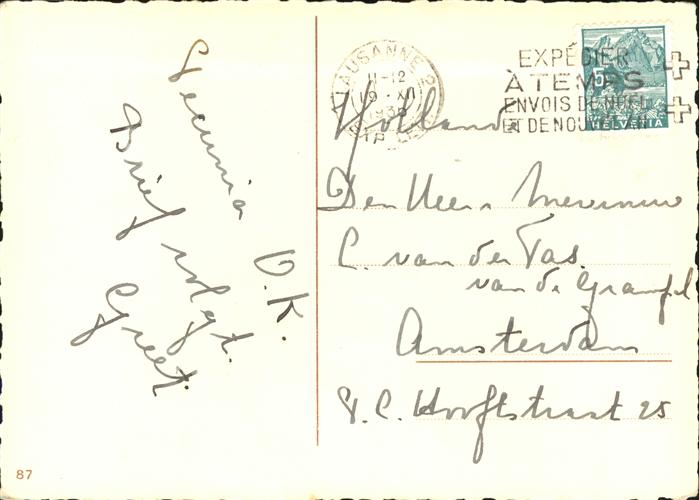 Pecunia O.K.
Brief volgt.
Greet.
87
LAUSANNE 2
11-12
19 XII
EXPÉDIER
À TEMPS
ENVOIS DE NOËL
ET DE NOUVEL AN
5
HELVETIA
Holland
Den Heer & Mevrouw
C. van der Tas.
van de Grampel
Amsterdam
P.C. Hooftstraat 25